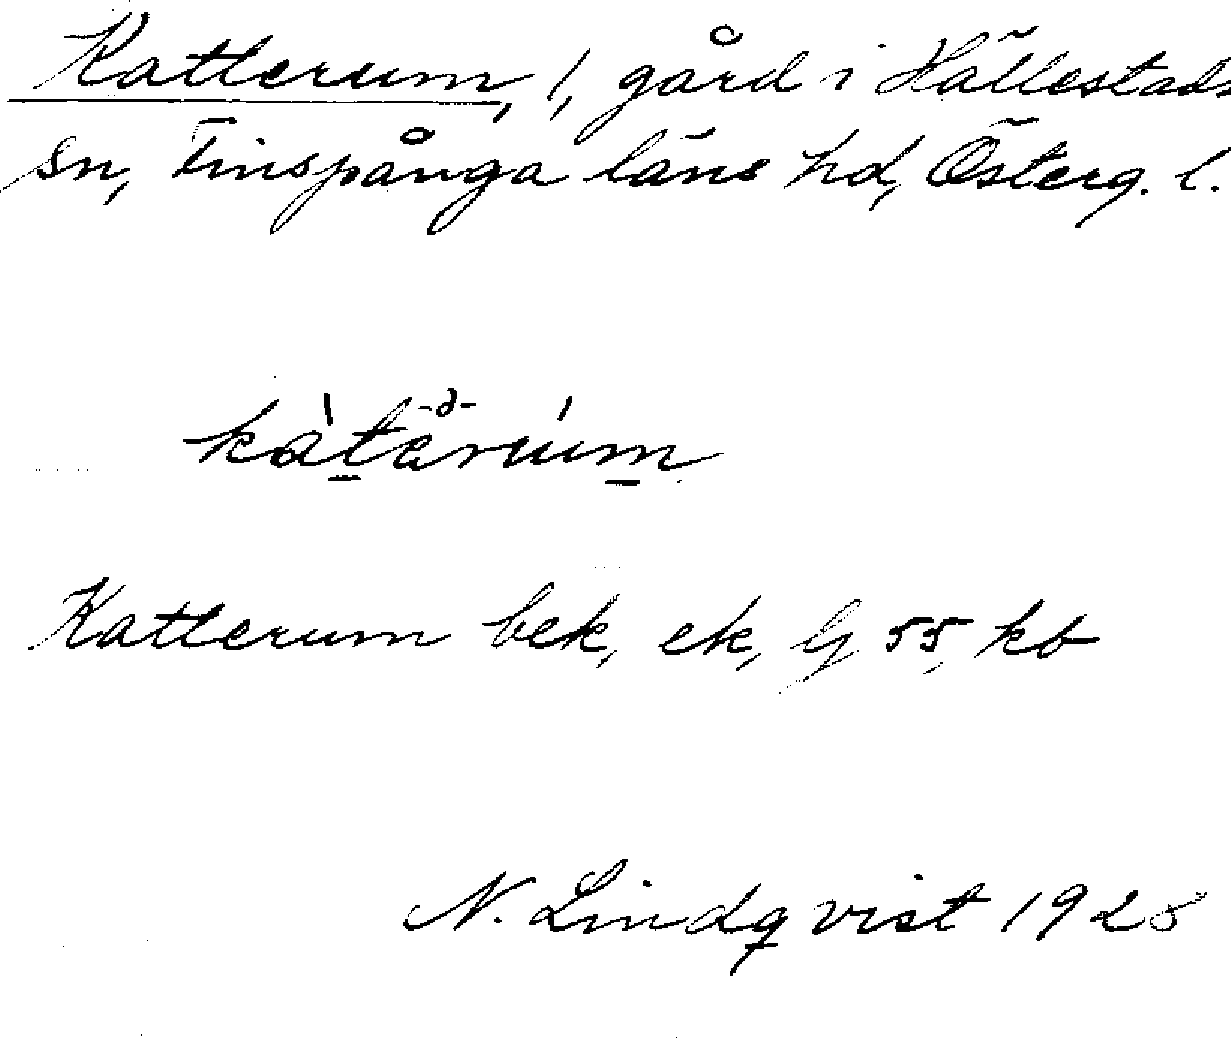 Katterum, 1, gård i Hällestads
sn, Finspånga läns hd, Österg. l.
-ə-
kàtäru̇́m
Katterum bek, ek, Gj 55, kb
N. Lindqvist 1928